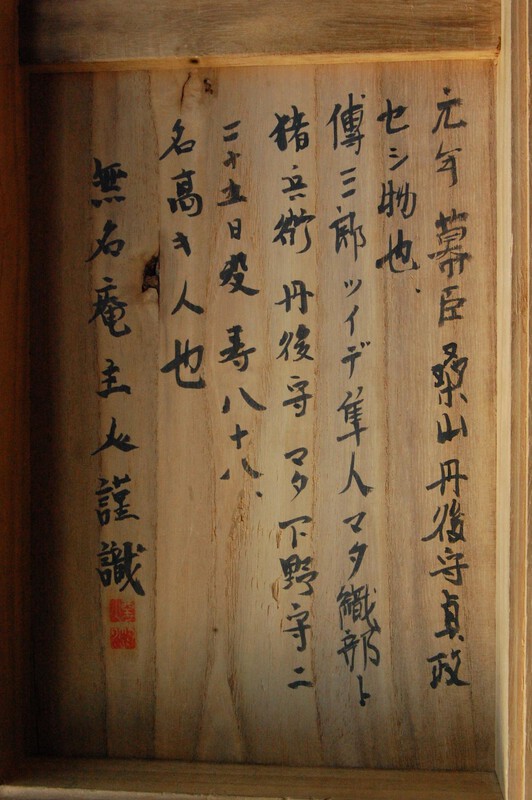 元年幕臣桑山丹後守貞政
セシ物也、
傳三郎ツイデ隼人マタ織部ト
猪兵衛丹後守マタ下野守ニ
二十五日歿寿八十八、
名高キ人也
無名庵主人謹識